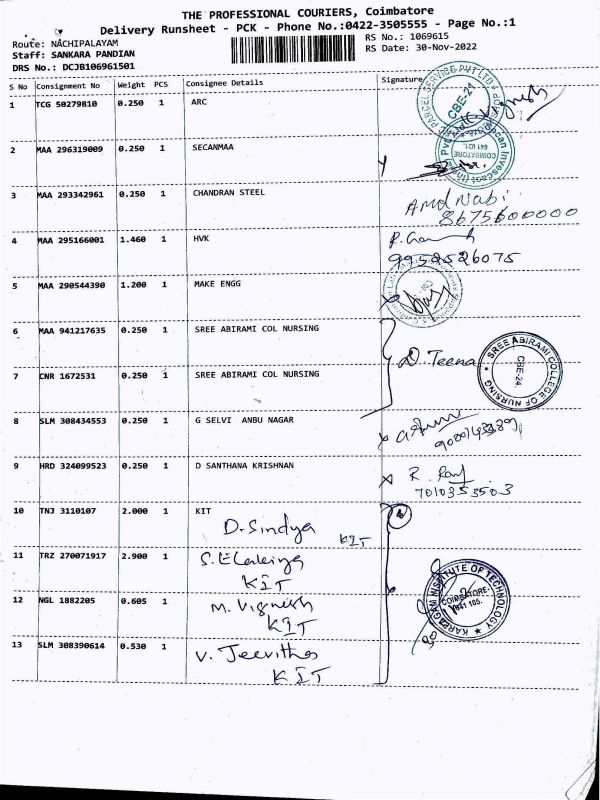 THE PROFESSIONAL COURIERS, Coimbatore
Delivery Runsheet - PCK - Phone No.:0422-3505555 - Page No.:1
Route: NACHIPALAYAM
RS No.: 1069615
Staff: SANKARA PANDIAN
RS Date: 30-Nov-2022
DRS No.: DCJB106961501
S No Consignment No Weight PCS Consignee Details Signature
1 TCG 50279810 0.250 1 ARC
CBE-21
2 MAA 296319009 0.250 1 SECANMAA
COIMBATORE
641 021.
3 MAA 293342961 0.250 1 CHANDRAN STEEL
Amd Nabi
8675600000
4 MAA 295166001 1.460 1 HVK
9952526075
5 MAA 290544390 1.200 1 MAKE ENGG
6 MAA 941217635 0.250 1 SREE ABIRAMI COL NURSING
D Teena
SREE ABIRAMI COLLEGE OF NURSING
CBE-24
7 CNR 1672531 0.250 1 SREE ABIRAMI COL NURSING
8 SLM 308434553 0.250 1 G SELVI ANBU NAGAR
9 HRD 324099523 0.250 1 D SANTHANA KRISHNAN
R. Raj
7010353503
10 TNJ 3110107 2.000 1 KIT
D. Sindya
KIT
11 TRZ 270071917 2.900 1
KIT
12 NGL 1882205 0.605 1 M. Vignesh
KIT
KARPAGAM INSTITUTE OF TECHNOLOGY
COIMBATORE-
641 105.
13 SLM 308390614 0.530 1 V. Jeevitha
KIT